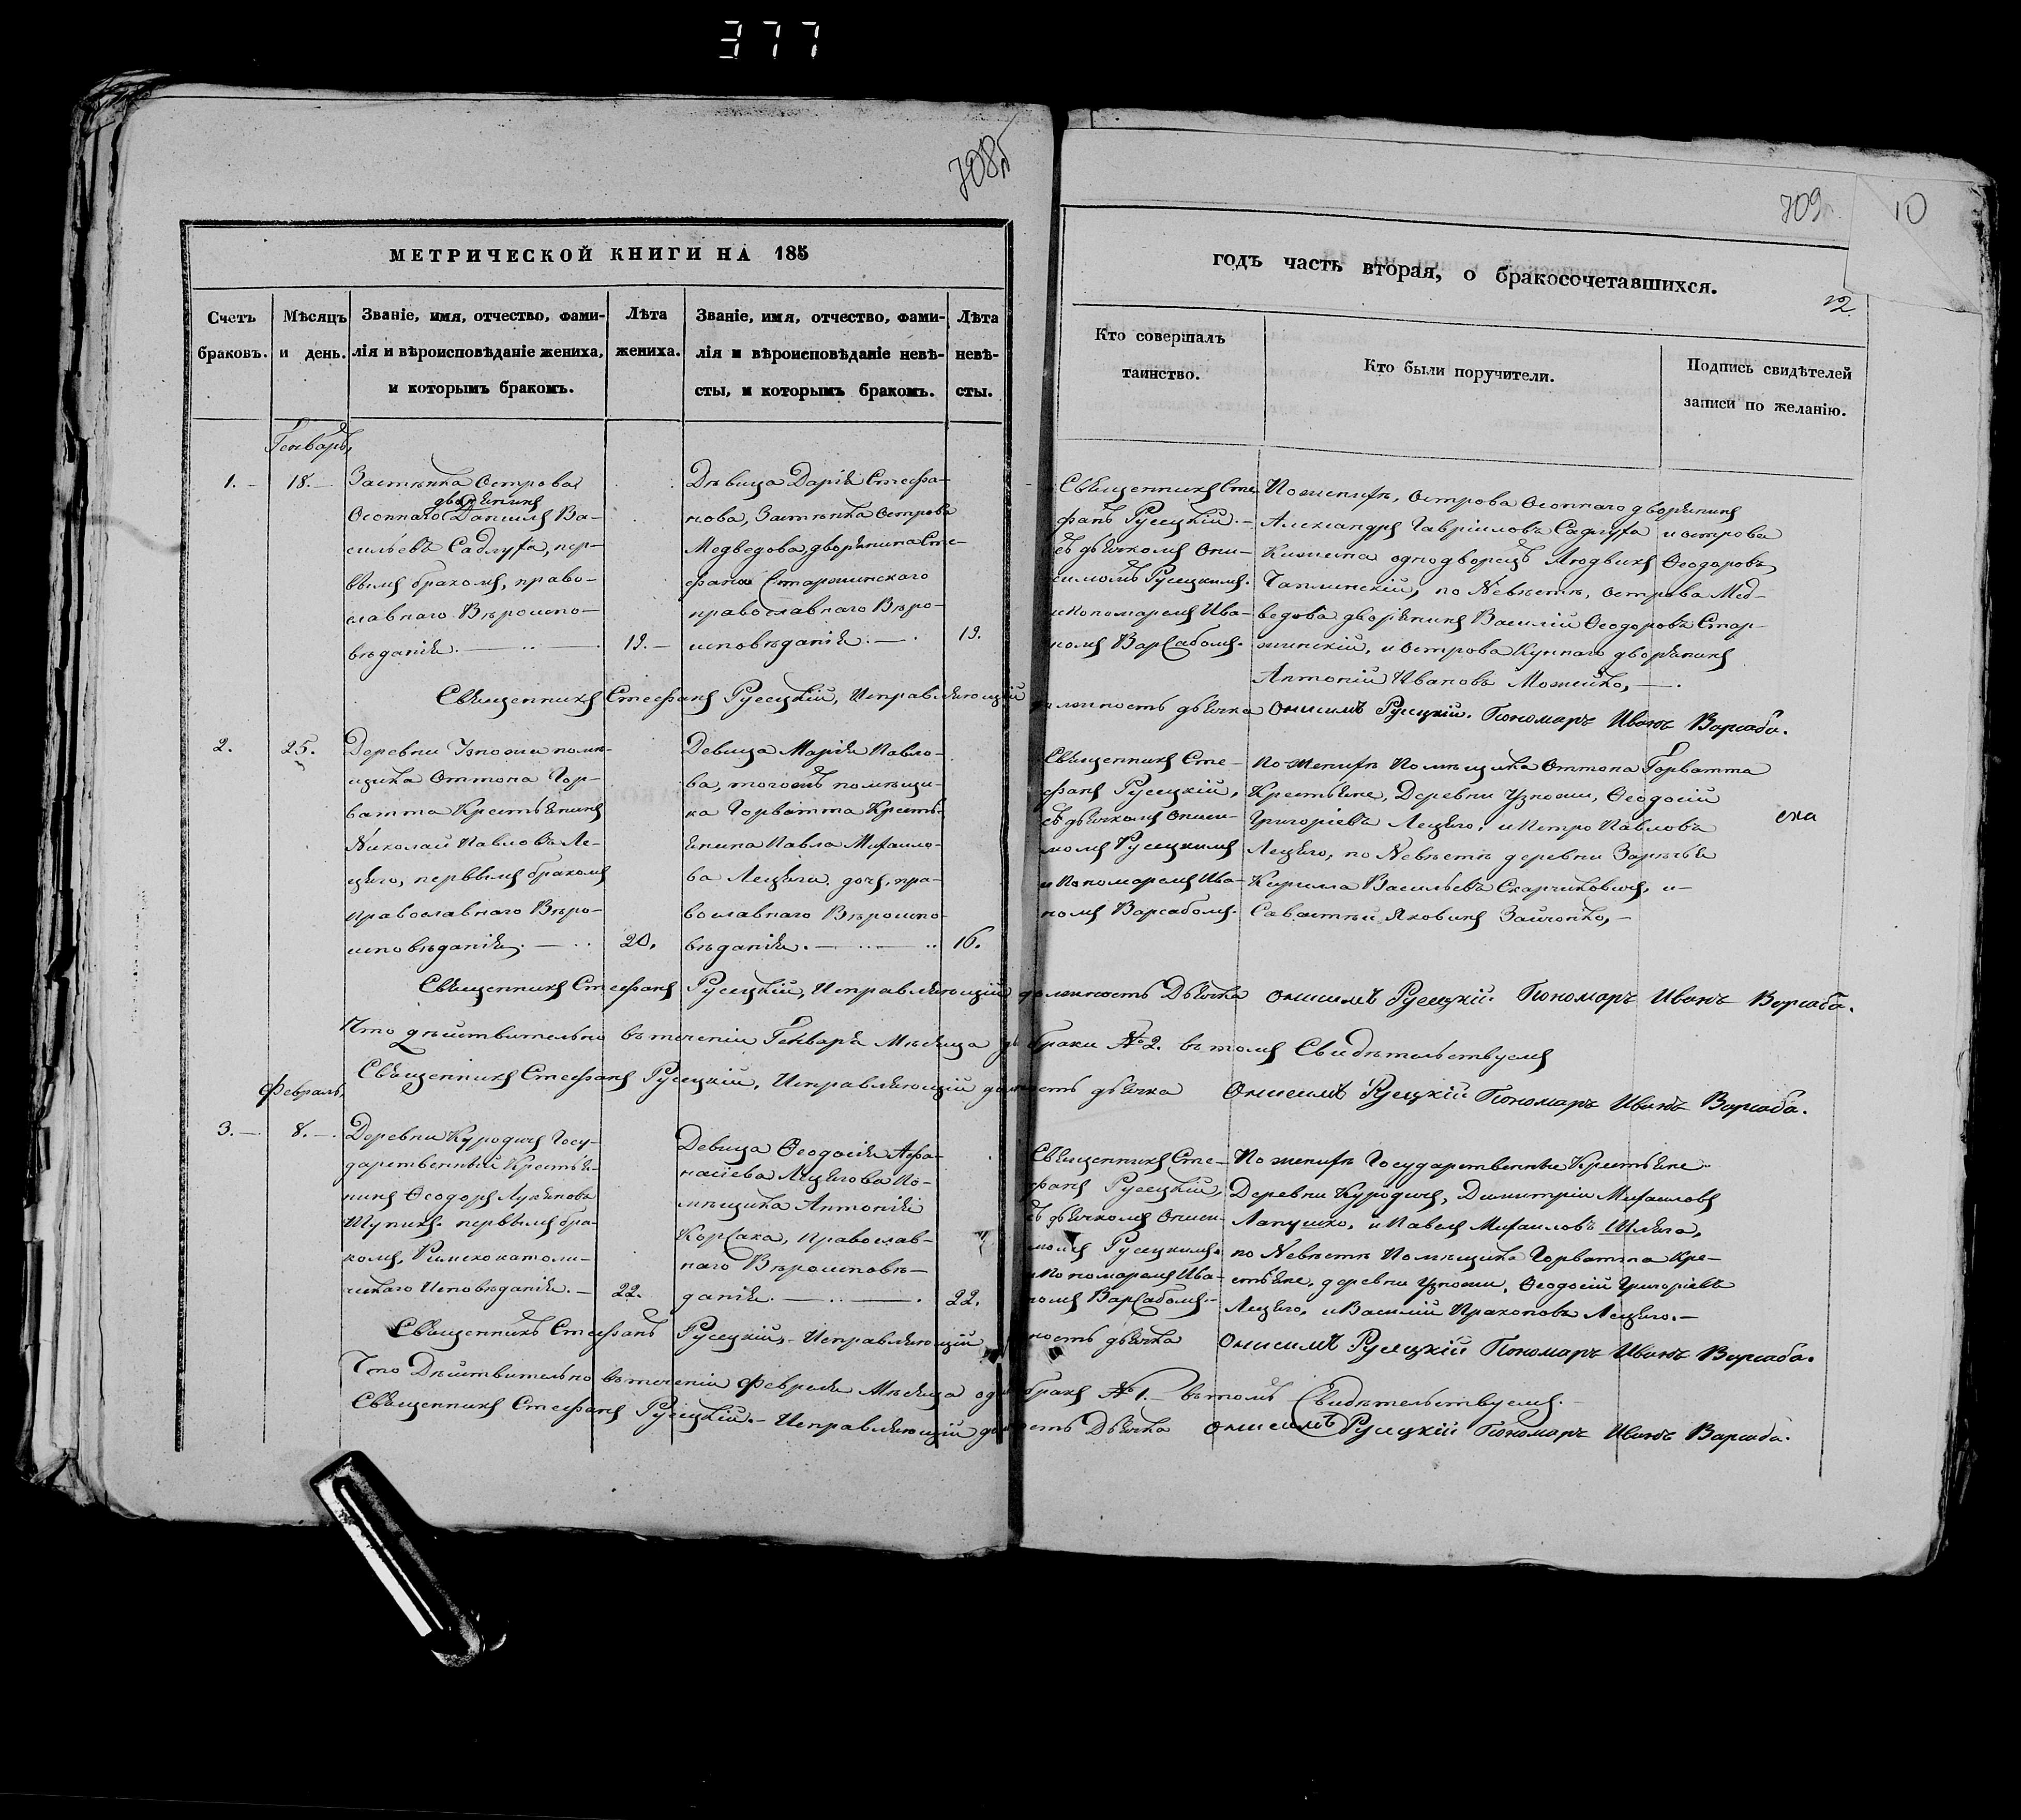 377
708
709
10
МЕТРИЧЕСКОЙ КНИГИ НА 185
годъ часть вторая, о бракосочетавшихся.
12
Счетъ браковъ.
Мѣсяцъ и день.
Званіе, имя, отчество, фами-
лія и вѣроисповѣданіе жениха,
и которымъ бракомъ.
Лѣта жениха.
Званіе, имя, отчество, фами-
лія и вѣроисповѣданіе невѣ-
сты, и которымъ бракомъ.
Лѣта невѣ-
сты.
Кто совершалъ
таинство.
Кто были поручители.
Подпись свидѣтелей
записи по желанію.
Генварь
1.
18.
Застѣнка Острова
дворянинъ
Осопнаго Даніилъ Ва-
сильевъ Садлуха, пер-
вымъ бракомъ, право-
славнаго Вѣроиспо-
вѣданія.
19.
Дѣвица Дарія Стефа-
нова, Застѣнка Острова
Медведова, дворянина Сте-
фана Старжинскаго
православнаго Вѣро-
исповѣданія.
19.
Священникъ Сте-
фанъ Русецкій
съ дьячкомъ Они-
симомъ Русецкимъ
и пономаремъ Ива-
номъ Варсабомъ.
По женихѣ, Острова Осопнаго дворянинъ
Александръ Гавріиловъ Садлуха и острова
однодворецъ Людвикъ Ѳеодоровъ
Чаплинскій, по Невѣстѣ, острова Мед-
ведова дворянинъ Василій Ѳеодоровъ Стар-
жинскій, и Острова Купнаго дворянинъ
Антоній Ивановъ Можейко,
Священникъ Стефанъ Русецкій, Исправляющій должность дьячка Онисимъ Русецкій. Пономарь Иванъ Варсаба.
2.
25.
Деревни Узножи помѣ-
щика Оттона Гор-
ватта Крестьянинъ
Николай Павловъ Ле-
цяго, первымъ бракомъ
православнаго Вѣро-
исповѣданія.
20.
Девица Марія Павло-
ва, тогожъ помѣщи-
ка Горватта Кресть-
янина Павла Михаило-
ва Лецяги дочь, пра-
вославнаго Вѣроиспо-
вѣданія.
16.
Священникъ Сте-
фанъ Русецкій,
съ дьячкомъ Ониси-
момъ Русецкимъ
и Пономаремъ Ива-
номъ Варсабомъ.
По женихѣ Помѣщика Оттона Горватта
Крестьяне, Деревни Узножи, Ѳеодосій
Григоріевъ Лецяго, и Петро Павловъ
Лецяго, по Невѣстѣ деревни Зарѣчья
Кирилла Васильевъ Скарчиковичъ, и
Саваѳтѣй Яковинъ Зайчонко,
Священникъ Стефанъ Русецкій, Исправляющій должность Дьячка Онисимъ Русецкій Пономарь Иванъ Варсаба.
Что дѣйствительно въ теченіи Генваря Мѣсяца два браки № 2. въ томъ Свидѣтельствуемъ
Священникъ Стефанъ Русецкій, Исправляющій должность дьячка Онисимъ Русецкій Пономарь Иванъ Варсаба.
Февраль.
3.
8.
Деревни Куродичъ Госу-
дарственный Крестья-
нинъ Ѳеодоръ Лукьяновъ
Шупикъ первымъ бра-
комъ, Римскокатоли-
ческаго Исповѣданія.
22.
Девица Ѳеодосія Афа-
насіева Лецягова По-
мѣщика Антонія
Корсака, Православ-
наго Вѣроисповѣ-
данія.
22.
Священникъ Сте-
фанъ Русецкій,
съ дьячкомъ Ониси-
момъ Русецкимъ
и Пономаремъ Ива-
номъ Варсабомъ.
По женихѣ Государственные Крестьяне
Деревни Куродичъ, Димитрій Михаиловъ
Лапушко, и Павелъ Михаиловъ Шляга,
по Невѣстѣ Помѣщика Горватта Кре-
стьяне, деревни Узножи, Ѳеодосій Григоріевъ
Лецяго, и Василій Прокоповъ Лецяго.
Священникъ Стефанъ Русецкій, Исправляющій должность дьячка Онисимъ Русецкій Пономарь Иванъ Варсаба.
Что Дѣйствительно въ теченіи Февраля Мѣсяца одинъ бракъ № 1. въ томъ Свидѣтельствуемъ.
Священникъ Стефанъ Русецкій. Исправляющій должность Дьячка Онисимъ Русецкій Пономарь Иванъ Варсаба.